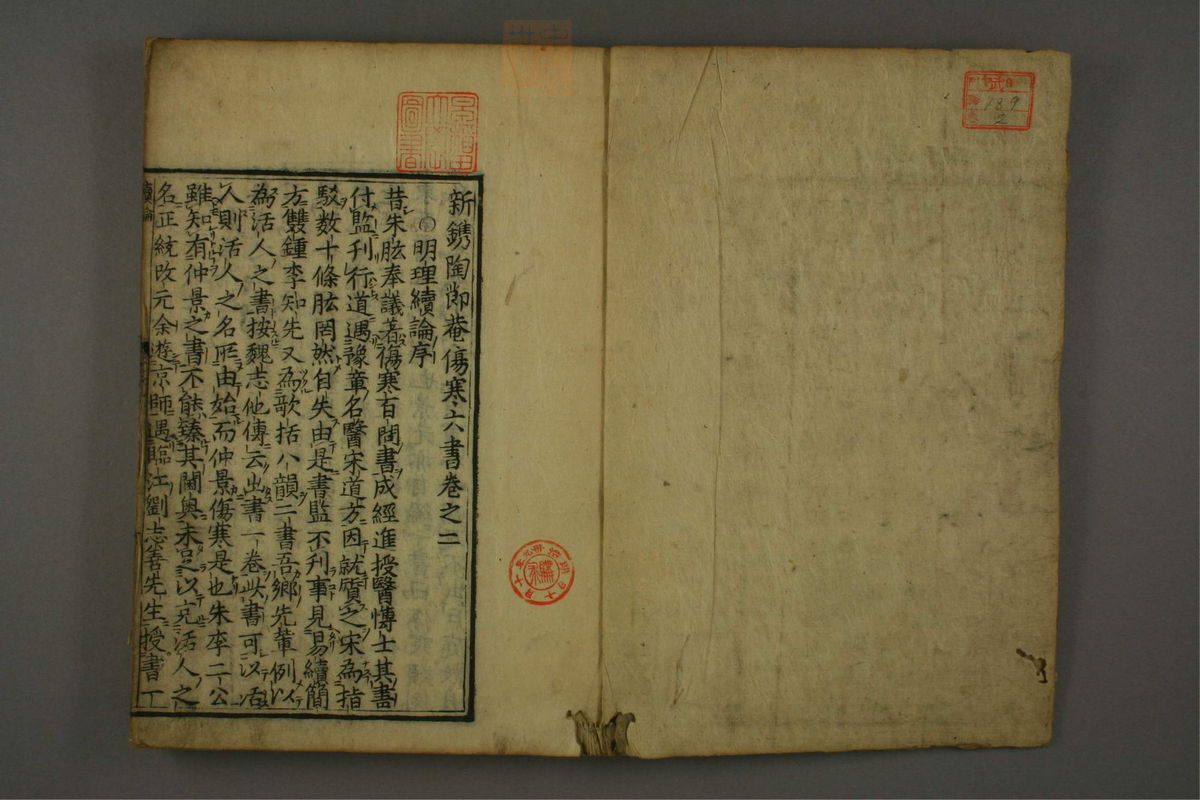 新鐫陶節菴傷寒六書卷之二
明理續論序
昔朱肱奉議著傷寒百問書成經進授醫愽士其書
付監刊行道遇豫章名醫宋道方因就質之宋為指
駁数十條肱罔然自失由是書監不刋事見易續簡
方雙鍾李知先又為歌括八韻二書吾鄉先輩例以
為活人之書按魏志佗傳云出書一卷此書可以活
人則活人之名所由始而仲景傷寒是也朱李二公
雖知有仲景之書不能臻其閫奥未足以充活人之
名正統改元余遊京師遇臨江劉志善先生授書一
續論
189
2